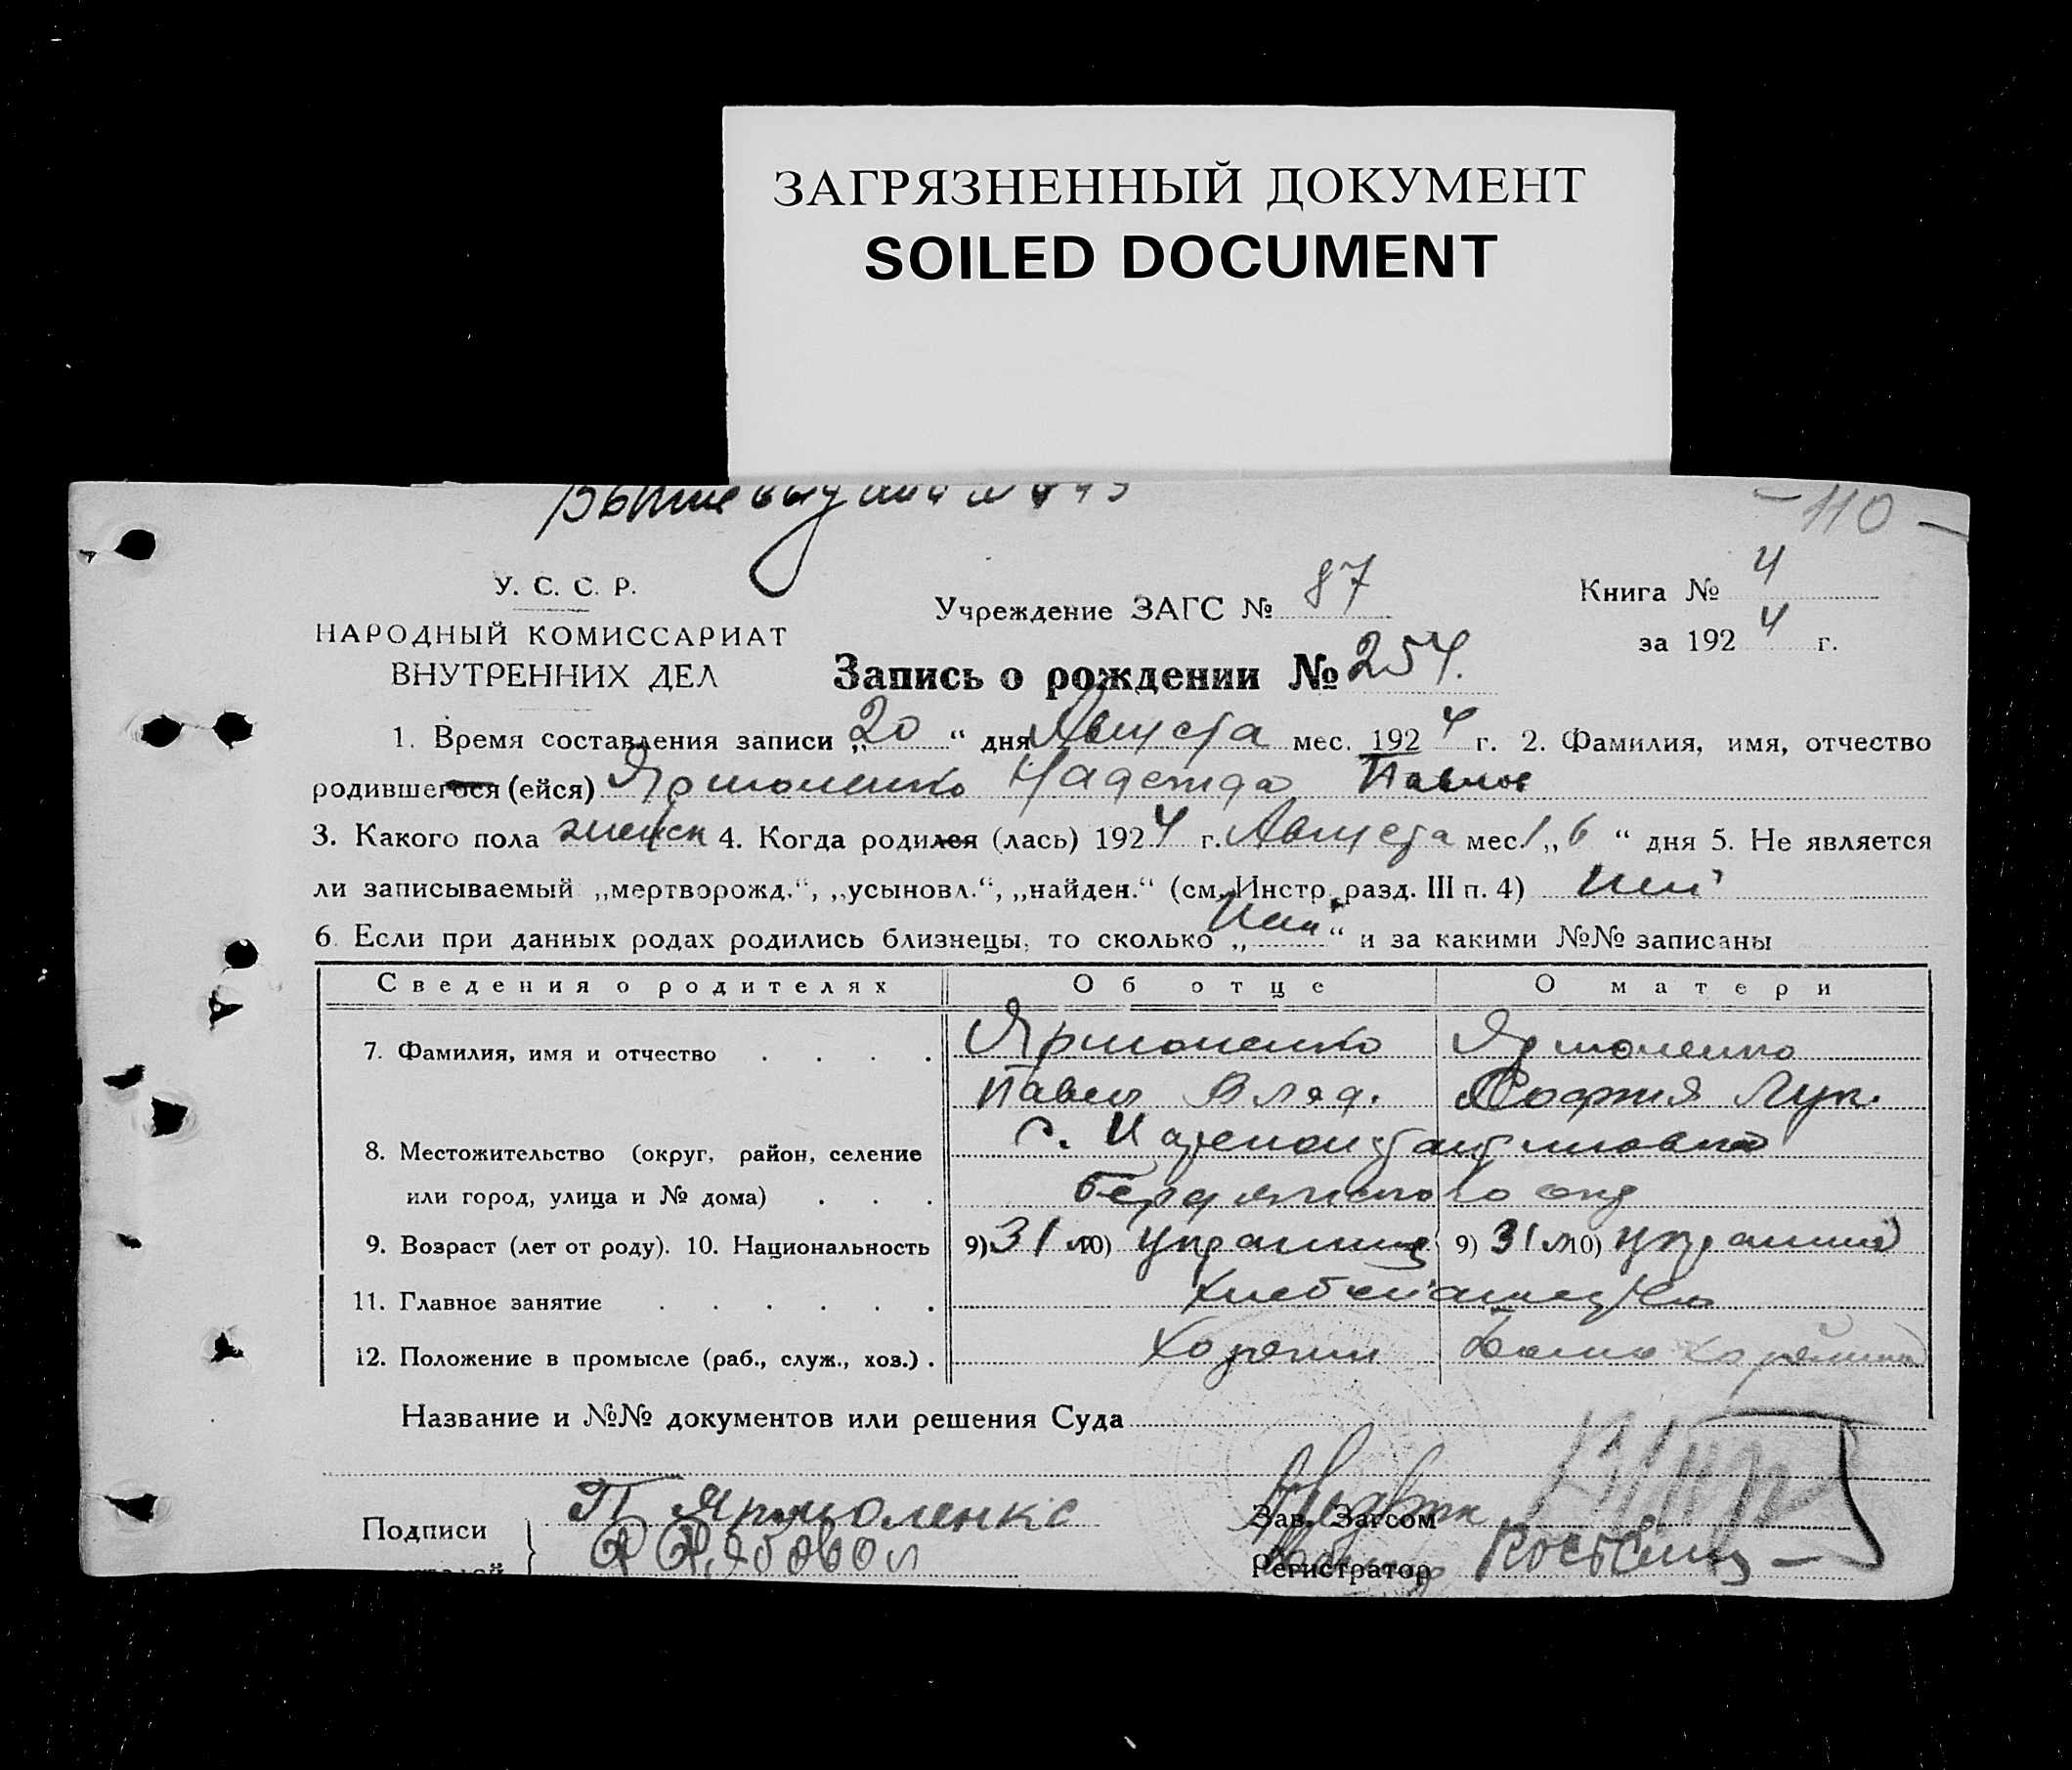 ЗАГРЯЗНЕННЫЙ ДОКУМЕНТ
SOILED DOCUMENT
- 110 -
У. С. С. Р.
НАРОДНЫЙ КОМИССАРИАТ
ВНУТРЕННИХ ДЕЛ
Учреждение ЗАГС № 87
Книга № 4
за 1924 г.
Запись о рождении № 254.
1. Время составления записи „20“ дня Августа мес. 1924 г. 2. Фамилия, имя, отчество
родившегося (ейся) Ярмоленко Надежда Павлов
3. Какого пола женск 4. Когда родился (лась) 1924 г. Августа мес. „16“ дня 5. Не является
ли записываемый „мертворожд.“, „усыновл.“, „найден.“ (см. Инстр. разд. III п. 4) Нет
6. Если при данных родах родились близнецы, то сколько „Нет“ и за какими №№ записаны
Сведения о родителях Об отце О матери
7. Фамилия, имя и отчество . . . . Ярмоленко Ярмоленко
Павел Влад. София Лук.
8. Местожительство (округ, район, селение с. Цареконстантиновка
или город, улица и № дома) . . . Бердянского окр
9. Возраст (лет от роду). 10. Национальность 9) 31 л 10) украинец 9) 31 л 10) украинка
11. Главное занятие . . . . . . Хлебопашество
12. Положение в промысле (раб., служ., хоз.) . Хозяин Дома хозяйка
Название и №№ документов или решения Суда
Подписи П Ярмоленко
Зав. Загсом
Регистратор